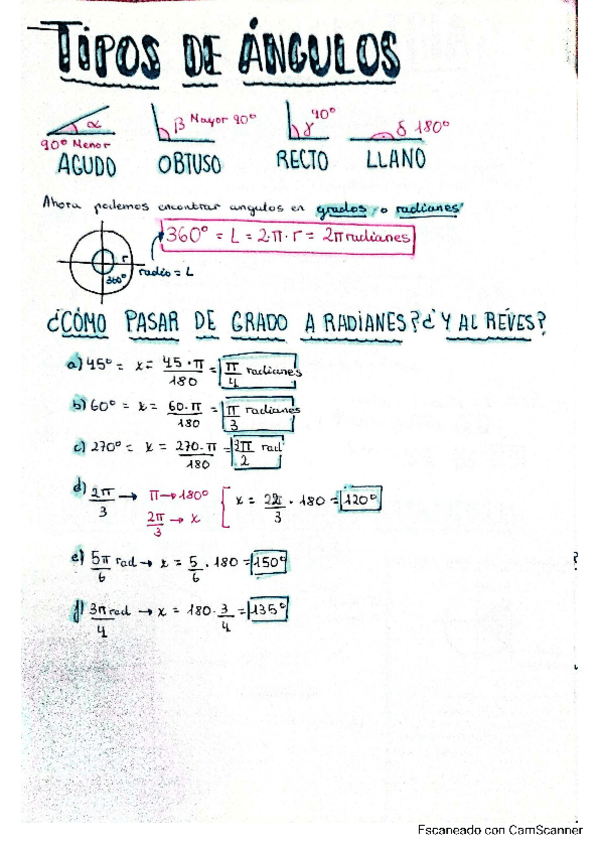 TIPOS DE ÁNGULOS
α β Mayor 90º 90º γ δ 180º
90º Menor
AGUDO OBTUSO RECTO LLANO
Ahora podemos encontrar angulos en grados o radianes
360º = L = 2·π·r = 2π radianes
r
360º
radio = L
¿CÓMO PASAR DE GRADO A RADIANES? ¿Y AL REVES?
a) 45º = x = 45·π/180 = π/4 radianes
b) 60º = x = 60·π/180 = π/3 radianes
c) 270º = x = 270·π/180 = 3π/2 rad
d) 2π/3 → π → 180º
2π/3 → x
x = 2/3 · 180 = 120º
e) 5π/6 rad → x = 5/6 · 180 = 150º
f) 3π/4 rad → x = 180 · 3/4 = 135º
Escaneado con CamScanner